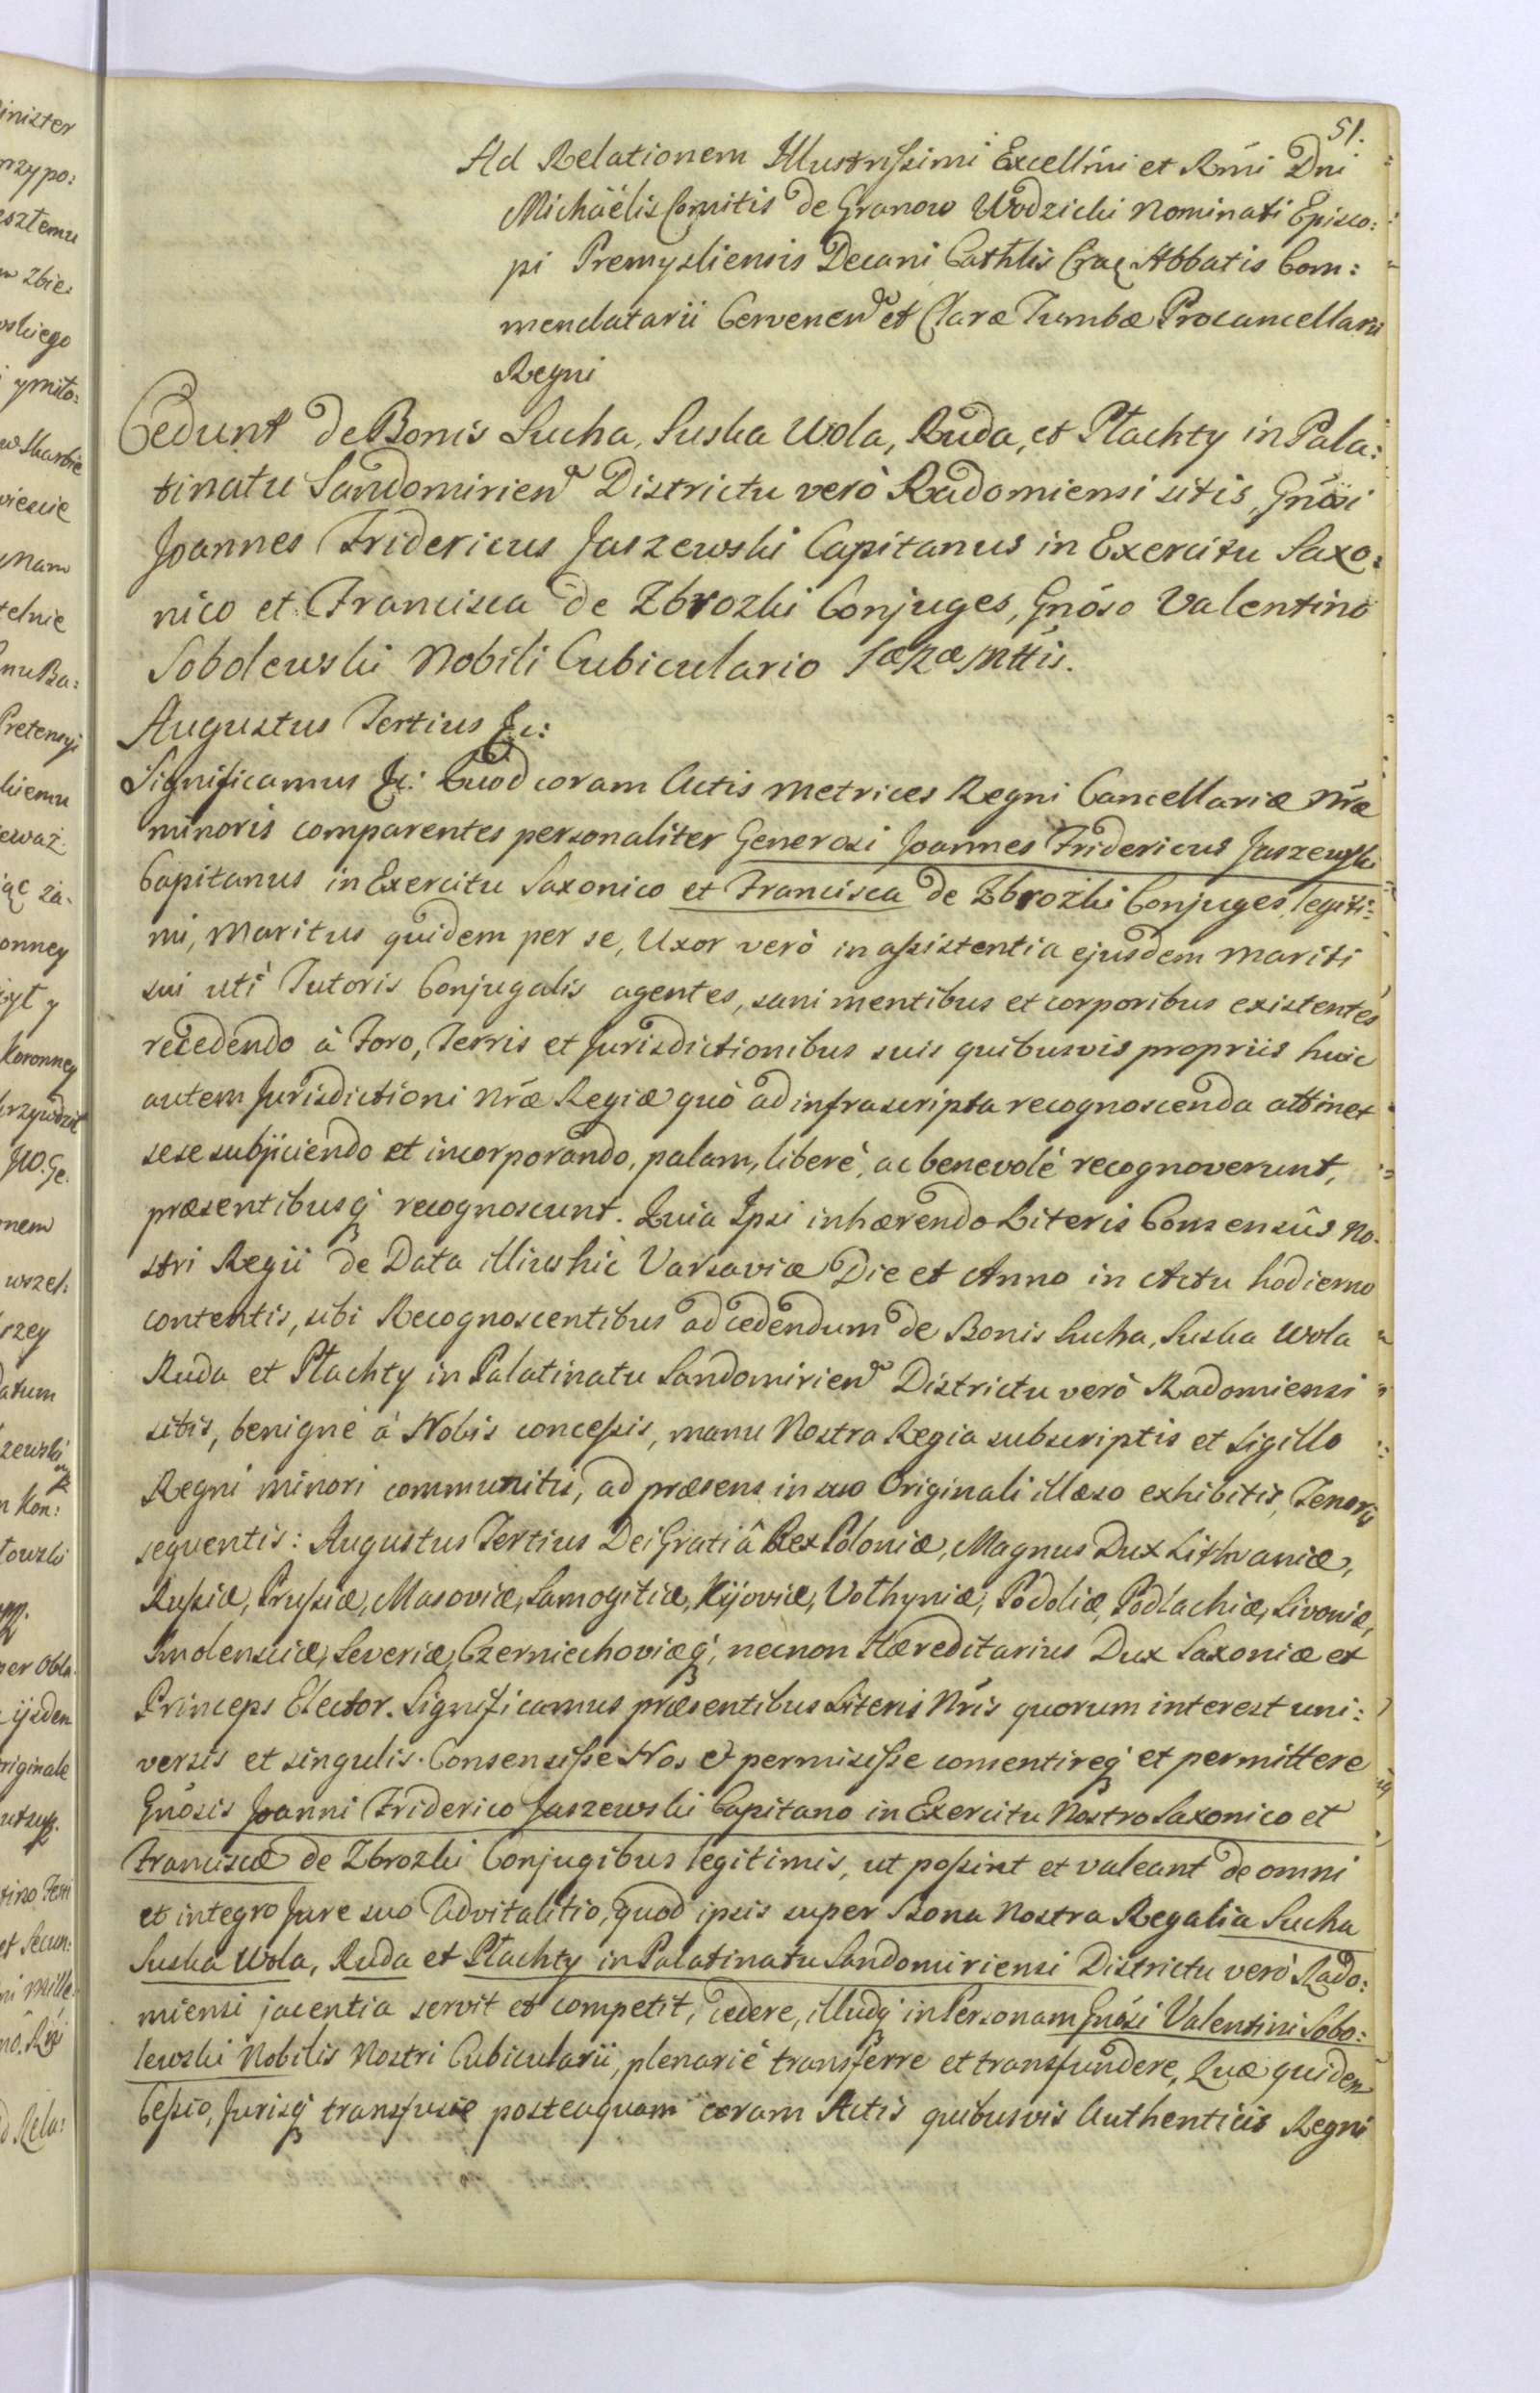 51.
Ad Relationem Illustrissimi Excellmi et Rmi Dni
Michäelis Comitis de Granow Wodzicki Nominati Episco:
pi Premysliensis Decani Cathlis Crac Abbatis Com:
mendatarii Cervenen et Claræ Tumbæ Procancellarii
Regni
Cedunt de Bonis Sucha, Suska Wola, Ruda, et Płachty in Pala:
tinatu Sandomirien Districtu verò Radomiensi sitis, Gnosi
Joannes Fridericus Jaszewski Capitanus in Exercitu Saxo:
nico et Francisca de Zbrozki Conjuges, Gnóso Valentino
Sobolewski Nobili Cubiculario SæRæMttis.
Augustus Tertius &c:
Significamus &c: Quod coram Actis Metrices Regni Cancellariæ Nræ
minoris comparentes personaliter Generosi Joannes Fridericus Jaszewski
Capitanus in Exercitu Saxonico et Francisca de Zbrożki Conjuges legiti:
mi, Maritus quidem per se, Uxor verò in assistentia ejusdem Mariti
sui uti Tutoris Conjugalis agentes, sani mentibus et corporibus existentes
recedendo à Foro, Terris et Jurisdictionibus suis quibusvis propriis huic
autem Jurisdictioni Nræ Regiæ quò ad infrascripta recognoscenda attinet
sese subjiciendo et incorporando, palam, liberè, ac benevolè recognoverunt,
præsentibusq recognoscunt. Quia Ipsi inhærendo Literis Consensûs No-
stri Regii de Data illius hic Varsaviæ Die et Anno in Actu hodierno
contentis, sibi Recognoscentibus ad cedendum de Bonis Sucha, Suska Wola
Ruda et Płachty in Palatinatu Sandomirien Districtu verò Radomiensi
sitis, benignè à Nobis concessis, manu Nostra Regia subscriptis et Sigillo
Regni minori communitis, ad præsens in suo Originali illæso exhibitis, Tenoris
sequentis: Augustus Tertius Dei Gratiâ Rex Poloniæ, Magnus Dux Lithvaniæ,
Russiæ, Prussiæ, Masoviæ, Samogitiæ, Kijoviæ, Vołhyniæ, Podoliæ, Podlachiæ, Livoniæ,
Smolensciæ, Severiæ, Czerniechoviæq, necnon Hæreditarius Dux Saxoniæ et
Princeps Elector. Significamus præsentibus Literis Nris quorum interest uni:
versis et singulis. Consensisse Nos et permisisse consentireq et permittere
Gnósis Joanni Friderico Jaszewski Capitano in Exercitu Nostro Saxonico et
Franciscæ de Zbrozki Conjugibus legitimis, ut possint et valeant de omni
et integro Jure suo Advitalitio, quod ipsis super Bona Nostra Regalia Sucha
Suska Wola, Ruda et Płachty in Palatinatu Sandomiriensi Districtu verò Rado:
miensi jacentia servit et competit, cedere, illudq in Personam Gnósi Valentini Sobo:
lewski Nobilis Nostri Cubicularii, plenariè transferre et transfundere, Quæ quidem
Cessio, Jurisq transfusio posteaquam coram Actis quibusvis Authenticis Regni